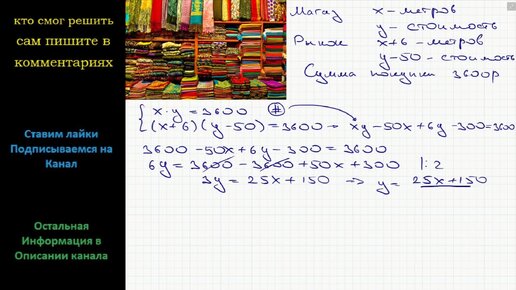 кто смог решить
сам пишите в
комментариях
Ставим лайки
Подписываемся на
Канал
Остальная
Информация в
Описании канала
Магаз x - метров
y - стоимость
Рынок x+6 - метров
y-50 - стоимость
Сумма покупки 3600р
{ x·y = 3600 (#)
(x+6)(y-50) = 3600 → xy - 50x + 6y - 300 = 3600
3600 - 50x + 6y - 300 = 3600
6y = 3600 - 3600 + 50x + 300 |:2
3y = 25x + 150 => y = 25x+150